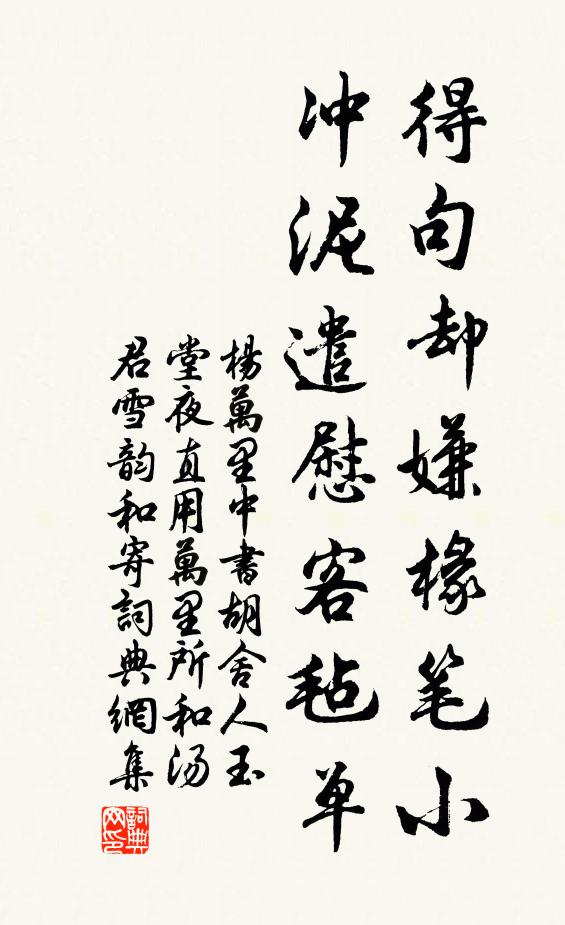 得句却嫌椽笔小
冲泥遣慰客毡单
楊萬里中書胡舍人玉
堂夜直用萬里所和汤
君雪韵和寄詞典網集
詞典
网印